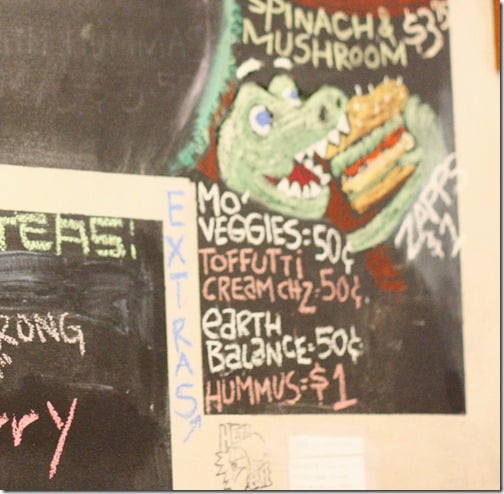 SPINACH & $3
MUSHROOM
ZAPPS
$1
EXTRAS
MO'
VEGGIES=50¢
TOFFUTTi
CREAM CHZ=50¢
EARTH
BALANCE=50¢
HUMMUS=$1
TEAS!
RONG
rry
HEY